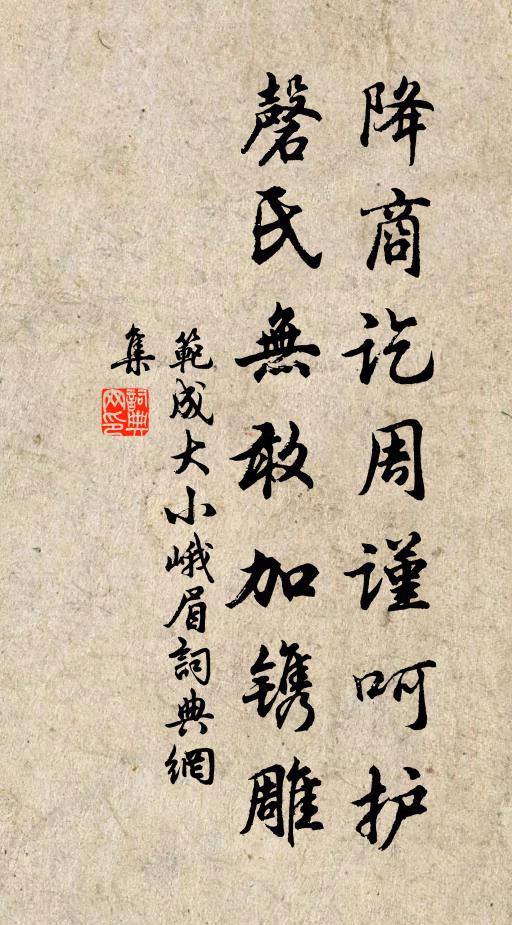 降商讫周谨呵护
磬氏無敢加镌雕
範成大小峨眉詞典網
集
詞典網印